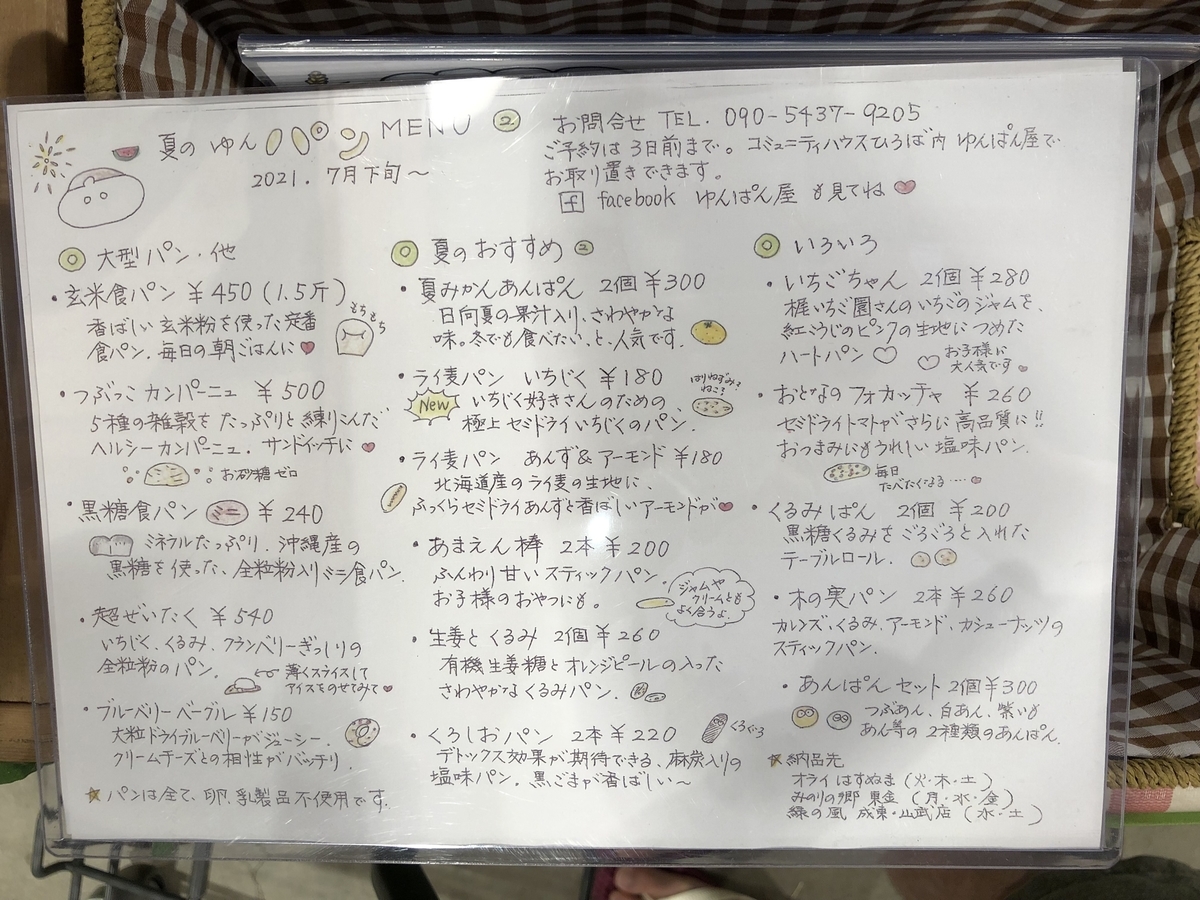 夏の ゆんパン MENU ②
2021. 7月下旬～
お問合せ TEL. 090-5437-9205
ご予約は 3日前まで。コミュニティハウスひろば内 ゆんぱん屋で
お取り置きできます。
f facebook ゆんぱん屋 も見てね
◎ 大型パン・他
・玄米食パン ¥450 (1.5斤)
香ばしい玄米粉を使った定番
食パン. 毎日の朝ごはんに
もちもち
・つぶっこ カンパーニュ ¥500
5種の雑穀を たっぷりと練りこんだ
ヘルシーカンパーニュ. サンドイッチに
お砂糖ゼロ
・黒糖食パン ミニ ¥240
ミネラルたっぷり. 沖縄産の
黒糖を使った、全粒粉入りミニ食パン.
・超ぜいたく ¥540
いちじく、くるみ、クランベリーぎっしりの
全粒粉のパン.
薄くスライスして
アイスをのせてみて
・ブルーベリー ベーグル ¥150
大粒ドライブルーベリーがジューシー.
クリームチーズとの相性がバッチリ.
☆ パンは全て、卵、乳製品不使用です.
◎ 夏のおすすめ ②
・夏みかんあんぱん 2個 ¥300
日向夏の果汁入り、さわやかな
味。冬でも食べたい、と、人気です.
・ライ麦パン いちじく ¥180
New いちじく好きさんのための、
極上セミドライいちじくのパン.
はりねずみ?
ねこ?
・ライ麦パン あんず&アーモンド ¥180
北海道産のライ麦の生地に、
ふっくらセミドライあんずと香ばしいアーモンドが
・あまえん棒 2本 ¥200
ふんわり甘いスティックパン.
お子様のおやつにも。
ジャムや
クリームとも
よく合うよ.
・生姜と くるみ 2個 ¥260
有機生姜糖とオレンジピールの入った
さわやかなくるみパン.
・くろしおパン 2本 ¥220
くろぐろ
デトックス効果が期待できる、麻炭入りの
塩味パン. 黒ごまが香ばしい～
◎ いろいろ
・いちごちゃん 2個 ¥280
梶いちご園さんのいちごのジャムを、
紅こうじのピンクの生地につめた
ハートパン
お子様に
大人気です
・おとなの フォカッチャ ¥260
セミドライトマトがさらに高品質に!!
おつまみにもうれしい塩味パン.
毎日
たべたくなる....
・くるみぱん 2個 ¥200
黒糖くるみをごろごろと入れた
テーブルロール.
・木の実パン 2本 ¥260
カレンズ、くるみ、アーモンド、カシューナッツの
スティックパン.
・あんぱんセット 2個 ¥300
つぶあん、白あん、紫いも
あん等の 2種類のあんぱん.
☆ 納品先
オライ はすぬま (火・木・土)
みのりの郷 東金 (月・水・金)
緑の風 成東・山武店 (水・土)